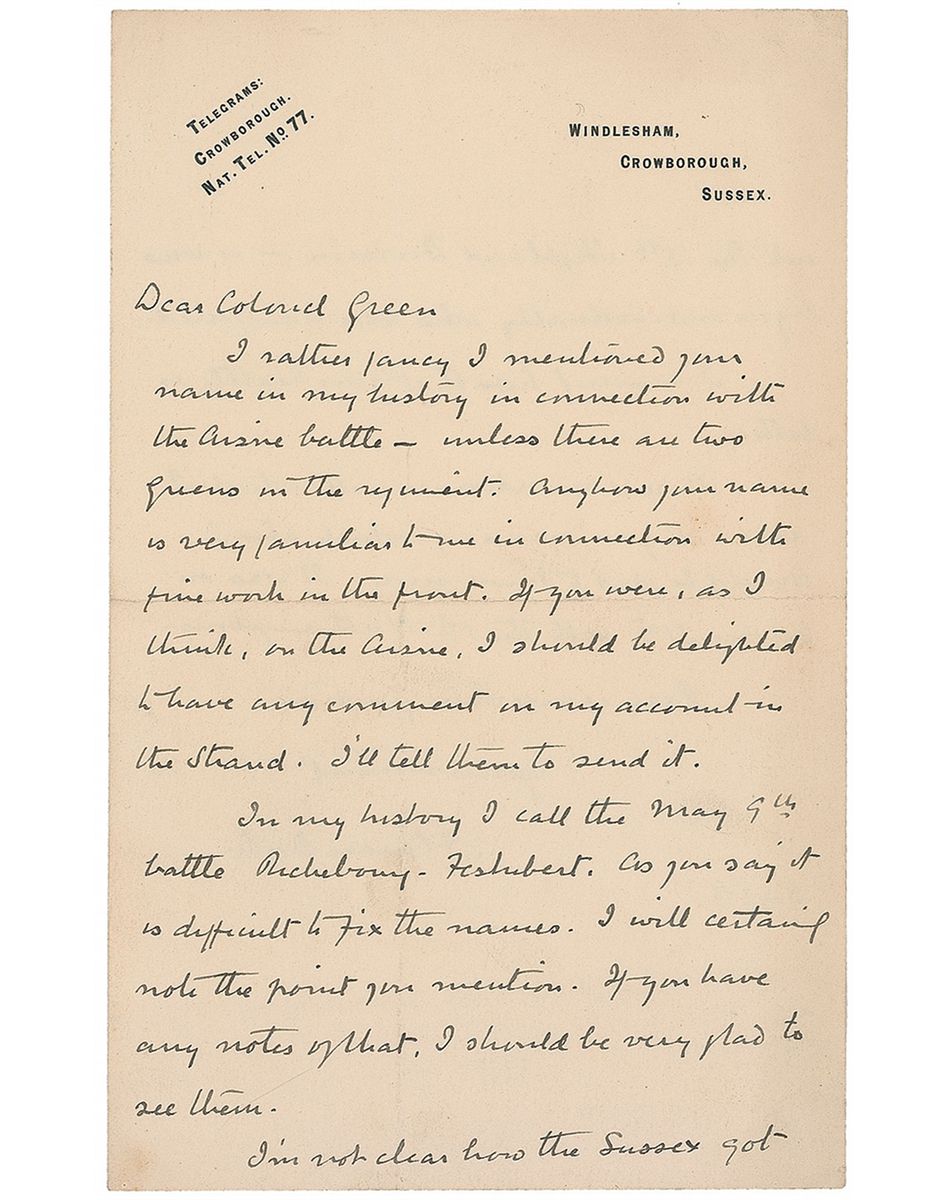 TELEGRAMS:
CROWBOROUGH.
NAT. TEL. No. 77.
WINDLESHAM,
CROWBOROUGH,
SUSSEX.
Dear Colonel Green
I rather fancy I mentioned your
name in my history in connection with
the Aisne battle — unless there are two
Greens in the regiment. Anyhow your name
is very familiar to me in connection with
fine work in the front. If you were, as I
think, on the Aisne, I should be delighted
to have any comment on my account in
the Strand. I'll tell them to send it.
In my history I call the May 9th
battle Richebourg-Festubert. As you say it
is difficult to fix the names. I will certainly
note the point you mention. If you have
any notes of that, I should be very glad to
see them.
I'm not clear how the Sussex got